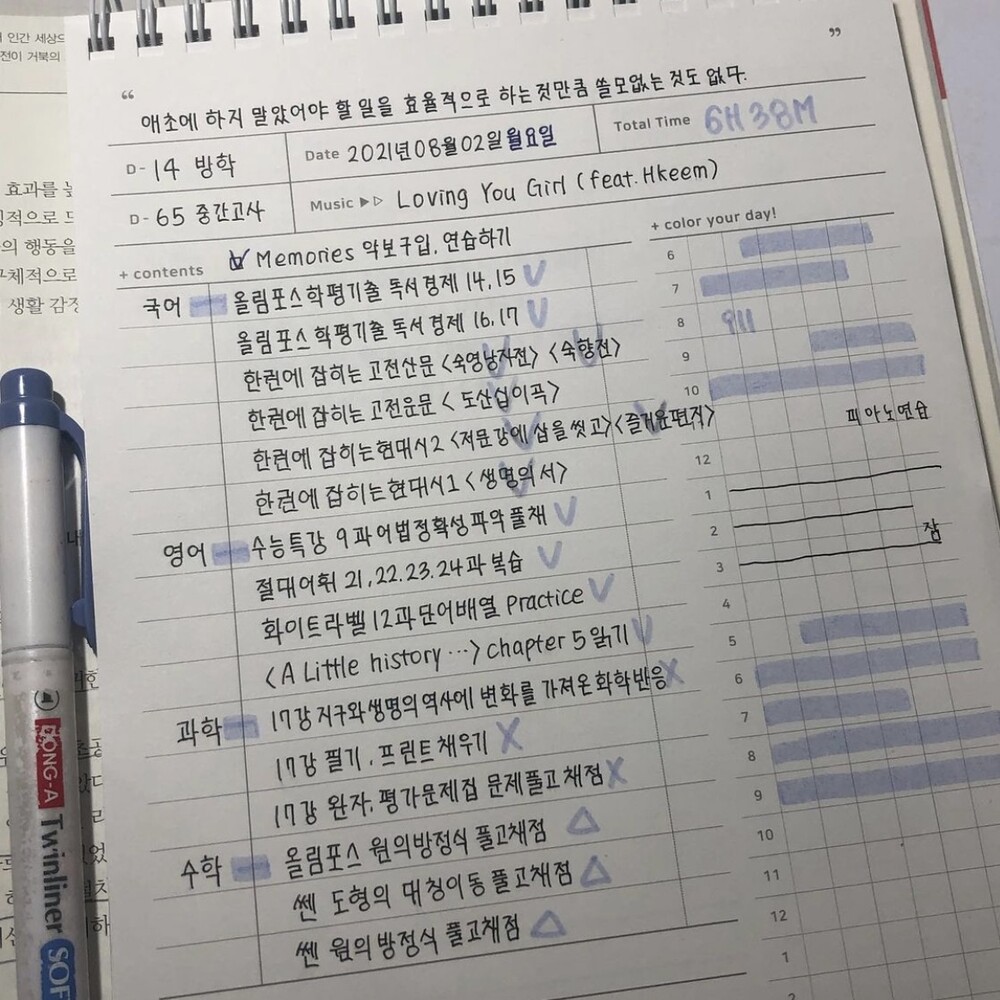 ”
“
애초에 하지 말았어야 할 일을 효율적으로 하는것만큼 쓸모없는 것도 없다.
D- 14 방학 Date 2021년 08월 02일 월요일 Total Time 6H 38M
D- 65 중간고사 Music ▶▷ Loving You Girl (feat. Hkeem)
+ contents V Memories 악보구입, 연습하기 + color your day!
국어 올림포스학평기출 독서경제 14, 15 V
올림포스 학평기출 독서 경제 16, 17 V
한권에 잡히는 고전산문 <숙영낭자전> <숙향전> V V
한권에 잡히는 고전운문 < 도산십이곡> V
한권에 잡히는현대시2 <저문강에 삽을 씻고><즐거운편지> V V
한권에 잡히는현대시1 < 생명의 서> V
영어 수능특강 9과 어법정확성파악 풀채 V
절대어휘 21, 22. 23. 24과 복습 V
화이트라벨 12과 단어배열 Practice V
<A Little history …> chapter 5 읽기 V
과학 17강 지구와생명의역사에 변화를 가져온화학반응 X
17강 필기, 프린트 채우기 X
17강 완자, 평가문제집 문제풀고 채점 X
수학 올림포스 원의방정식 풀고채점 △
쎈 도형의 대칭이동 풀고채점 △
쎈 원의방정식 풀고채점 △
6
7
8 911
9
10
피아노연습
12
1
2 잠
3
4
5
6
7
8
9
10
11
12
1
2
인간 세상으
전이 거북의
효과를 높
의 행동을
구체적으로
생활 감정
DONG-A Twinliner SOF